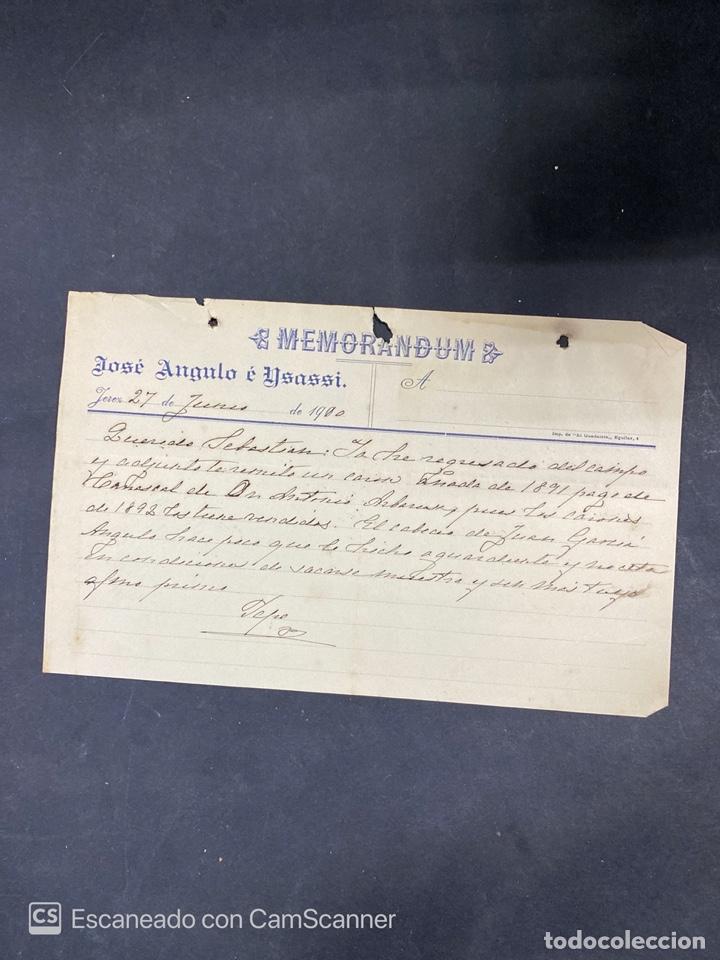 MEMORANDUM
José Angulo é Ysassi.
A
Jerez 27 de Junio de 1900
Imp. de "El Guadalete", Eguilaz, 4
Querido Sebastian: Ya he regresado del campo
y adjunto te remito un Añada de 1891 pago de
Carrascal de Dn Antonio y pues los
de 1892 los tiene vendidos. El cabeceo de Juan Garcia
Angulo hace poco que lo hecho aguardiente y no esta
en condiciones de sacarse muestra y sin mas tuyo
afmo primo
Pepe
CS Escaneado con CamScanner
todocoleccion